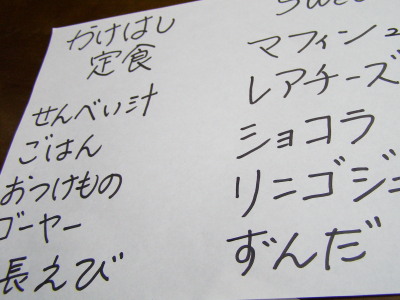 かけはし
定食
せんべい汁
ごはん
おつけもの
ゴーヤー
長えび
マフィン
レアチーズ
ショコラ
リンゴジ
ずんだ